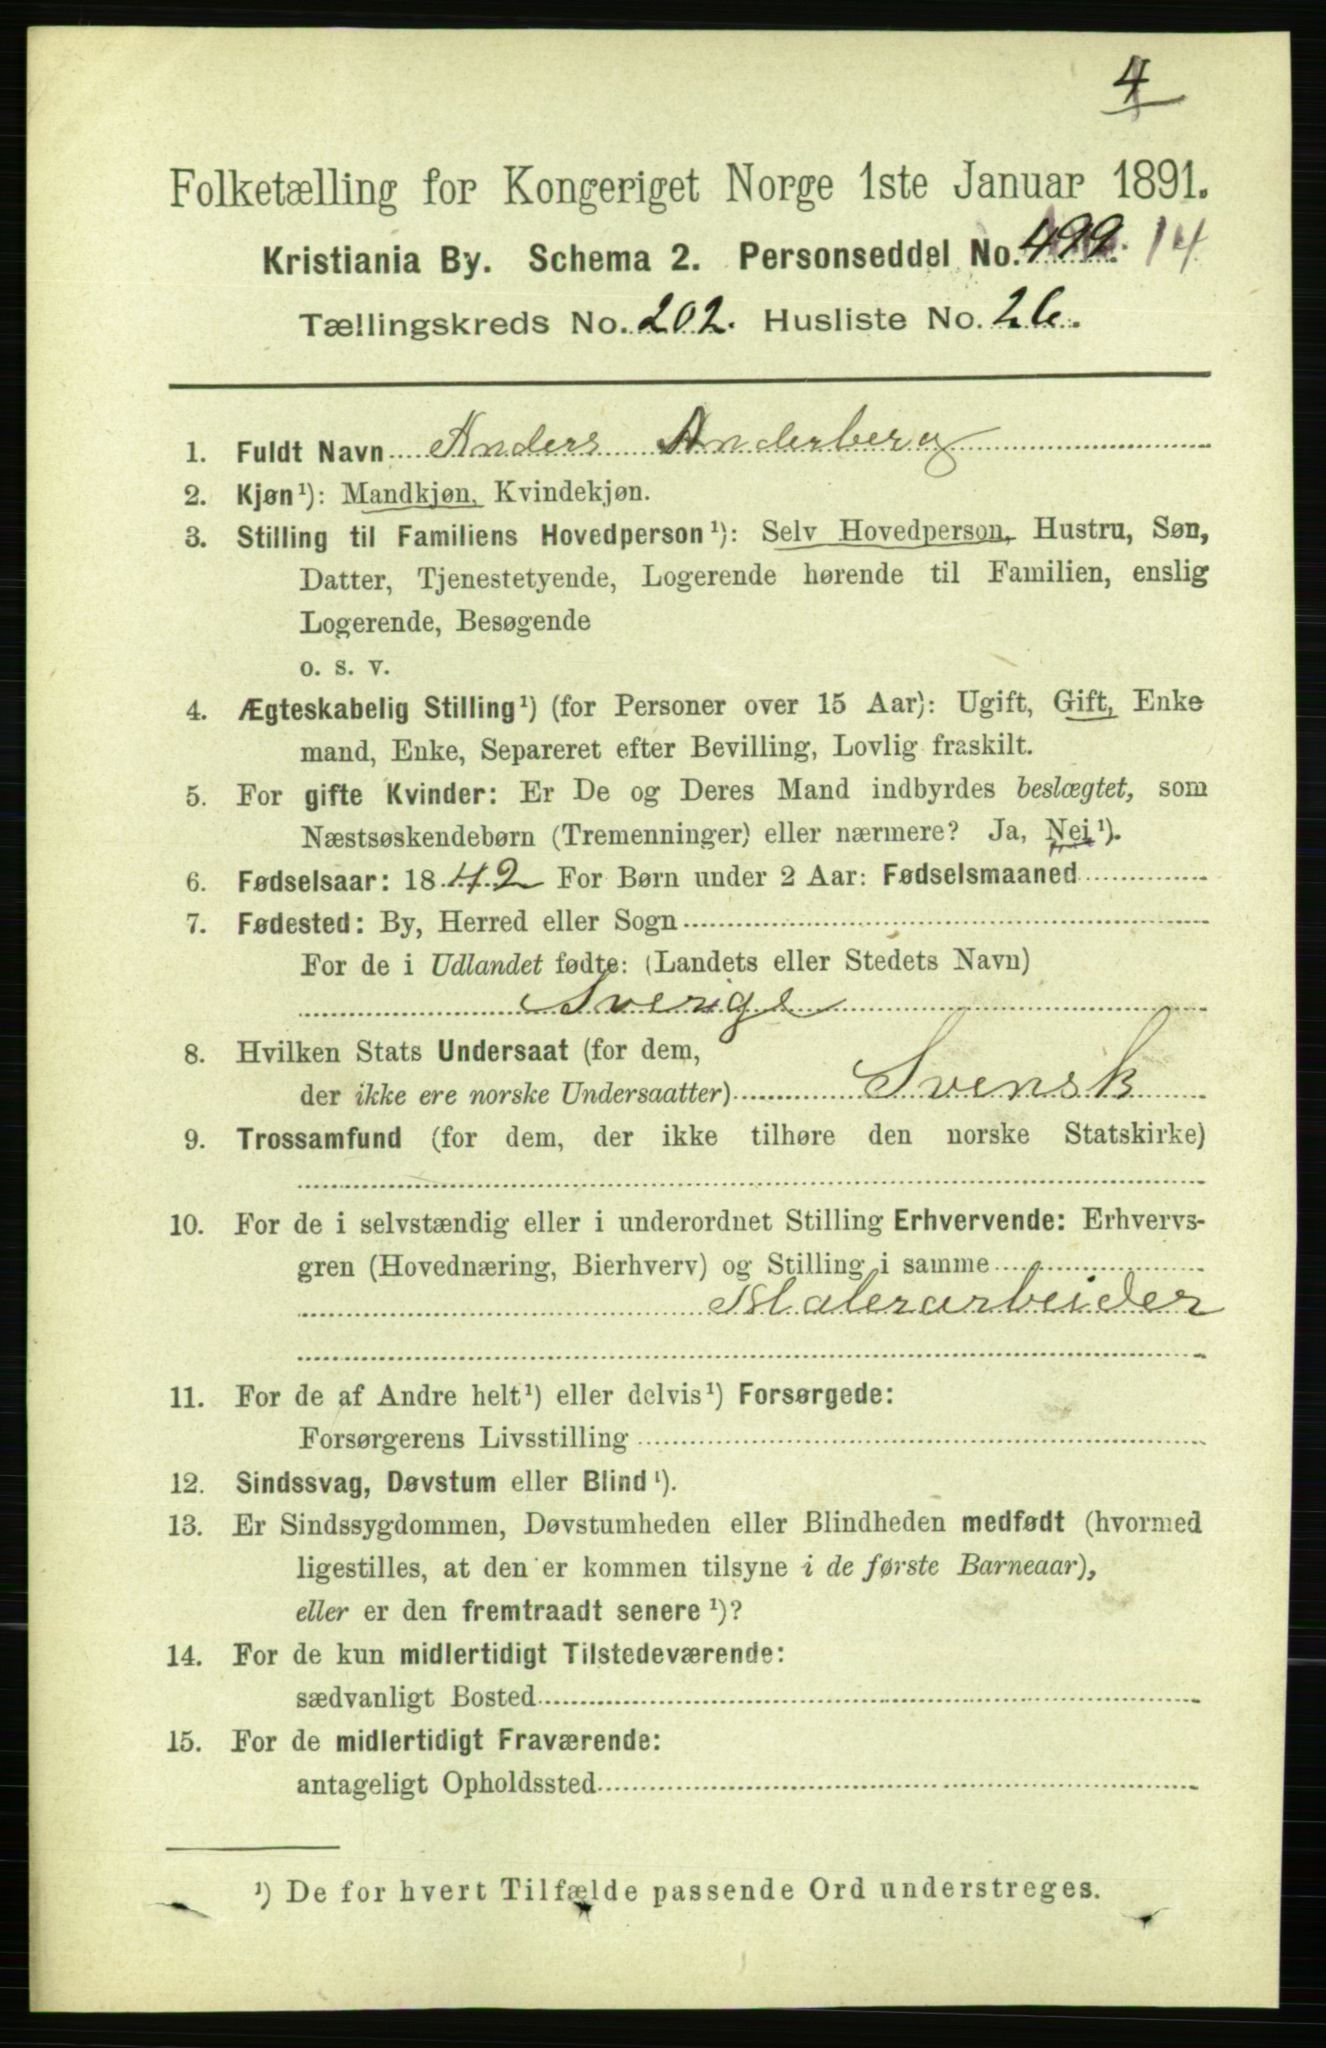 4
Folketælling for Kongeriget Norge 1ste Januar 1891.
Kristiania By. Schema 2. Personseddel No. 499. 14
Tællingskreds No. 202. Husliste No. 26.
1. Fuldt Navn Anders Anderberg
2. Kjøn¹): Mandkjøn, Kvindekjøn.
3. Stilling til Familiens Hovedperson¹): Selv Hovedperson, Hustru, Søn,
Datter, Tjenestetyende, Logerende hørende til Familien, enslig
Logerende, Besøgende
o. s. v.
4. Ægteskabelig Stilling¹) (for Personer over 15 Aar): Ugift, Gift, Enke
mand, Enke, Separeret efter Bevilling, Lovlig fraskilt.
5. For gifte Kvinder: Er De og Deres Mand indbyrdes beslægtet, som
Næstsøskendebørn (Tremenninger) eller nærmere? Ja, Nei¹).
6. Fødselsaar: 1842 For Børn under 2 Aar: Fødselsmaaned
7. Fødested: By, Herred eller Sogn
For de i Udlandet fødte: (Landets eller Stedets Navn)
Sverige
8. Hvilken Stats Undersaat (for dem,
der ikke ere norske Undersaatter) Svensk
9. Trossamfund (for dem, der ikke tilhøre den norske Statskirke)
10. For de i selvstændig eller i underordnet Stilling Erhvervende: Erhvervs-
gren (Hovednæring, Bierhverv) og Stilling i samme
Malerarbeider
11. For de af Andre helt¹) eller delvis¹) Forsørgede:
Forsørgerens Livsstilling
12. Sindssvag, Døvstum eller Blind¹).
13. Er Sindssygdommen, Døvstumheden eller Blindheden medfødt (hvormed
ligestilles, at den er kommen tilsyne i de første Barneaar),
eller er den fremtraadt senere¹)?
14. For de kun midlertidigt Tilstedeværende:
sædvanligt Bosted
15. For de midlertidigt Fraværende:
antageligt Opholdssted
¹) De for hvert Tilfælde passende Ord understreges.